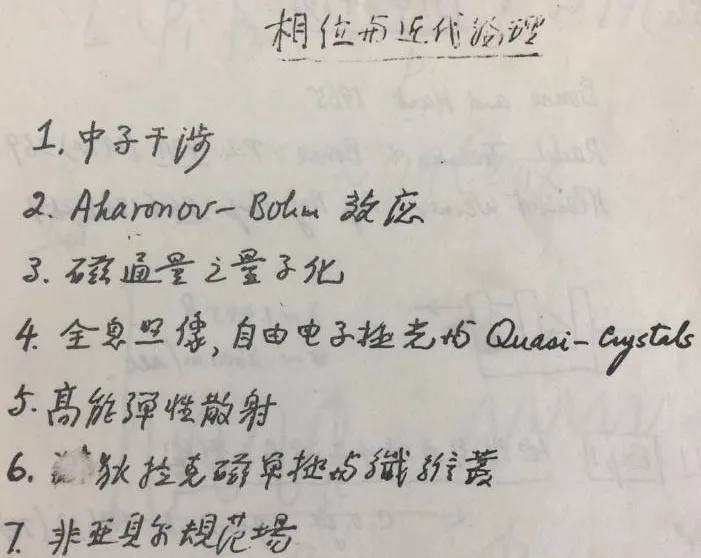 相位与近代物理
1. 中子干涉
2. Aharonov-Bohm 效应
3. 磁通量之量子化
4. 全息照像, 自由电子极光与 Quasi-Crystals
5. 高能弹性散射
6. 狄拉克磁单极与纖維叢
7. 非亚贝尔规范場